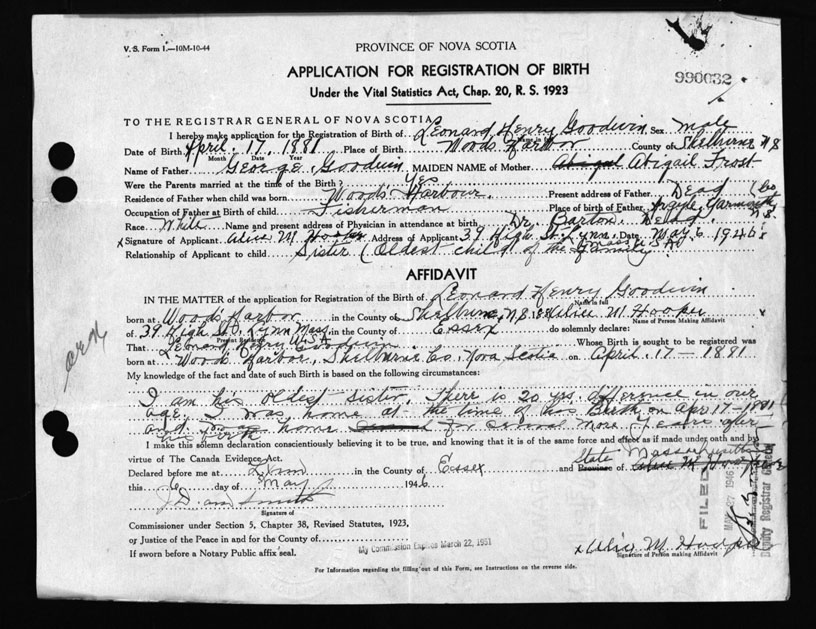 V. S. Form 1.—10M-10-44
PROVINCE OF NOVA SCOTIA
APPLICATION FOR REGISTRATION OF BIRTH
Under the Vital Statistics Act, Chap. 20, R. S. 1923
990032
TO THE REGISTRAR GENERAL OF NOVA SCOTIA
I hereby make application for the Registration of Birth of Leonard Henry Goodwin Sex male
Name in full
Date of Birth April. 17, 1881 Place of Birth Woods Harbor County of Shelburne N S
Month Date Year
Name of Father George Goodwin MAIDEN NAME of Mother Abigail Abigail Frost
Were the Parents married at the time of the Birth? Yes
Residence of Father when child was born Woods Harbour. Present address of Father Dead
Occupation of Father at Birth of child Fisherman Place of Birth of Father Argyle, Yarmouth Co, N S
Race White Name and present address of Physician in attendance at birth Dr. Barton, Dead.
x Signature of Applicant Alice M Hooper Address of Applicant 39 High St Lynn, Mass U S A Date May 6 1946
Relationship of Applicant to child Sister (Oldest child of the family)
AFFIDAVIT
IN THE MATTER of the application for Registration of the Birth of Leonard Henry Goodwin
Name in full
born at Woods Harbor in the County of Shelburne, N S Alice M Hooper x
Name of Person Making Affidavit
of 39 High St, Lynn Mass U S A in the County of Essex do solemnly declare:
Present Residence
That Leonard Henry Goodwin Whose Birth is sought to be registered was
born at Woods Harbor, Shelburne Co., Nova Scotia on April. 17 — 1881
My knowledge of the fact and date of such Birth is based on the following circumstances:
I am his oldest sister, There is 20 yrs. difference in our
age. I was home at the time of his Birth on Apr 17 — 1881
and home for several more years after
his birth
I make this solemn declaration conscientiously believing it to be true, and knowing that it is of the same force and effect as if made under oath and by
virtue of The Canada Evidence Act.
Declared before me at Lynn in the County of Essex and Province of State Massachusetts
this 6 day of May 1946
Signature of
Commissioner under Section 5, Chapter 38, Revised Statutes, 1923,
or Justice of the Peace in and for the County of
My Commission Expires March 22, 1951
If sworn before a Notary Public affix seal.
x Alice M Hooper
Signature of Person making Affidavit
FILED
MAY 27 1946
Deputy Registrar General
For Information regarding the filling out of this Form, see Instructions on the reverse side.